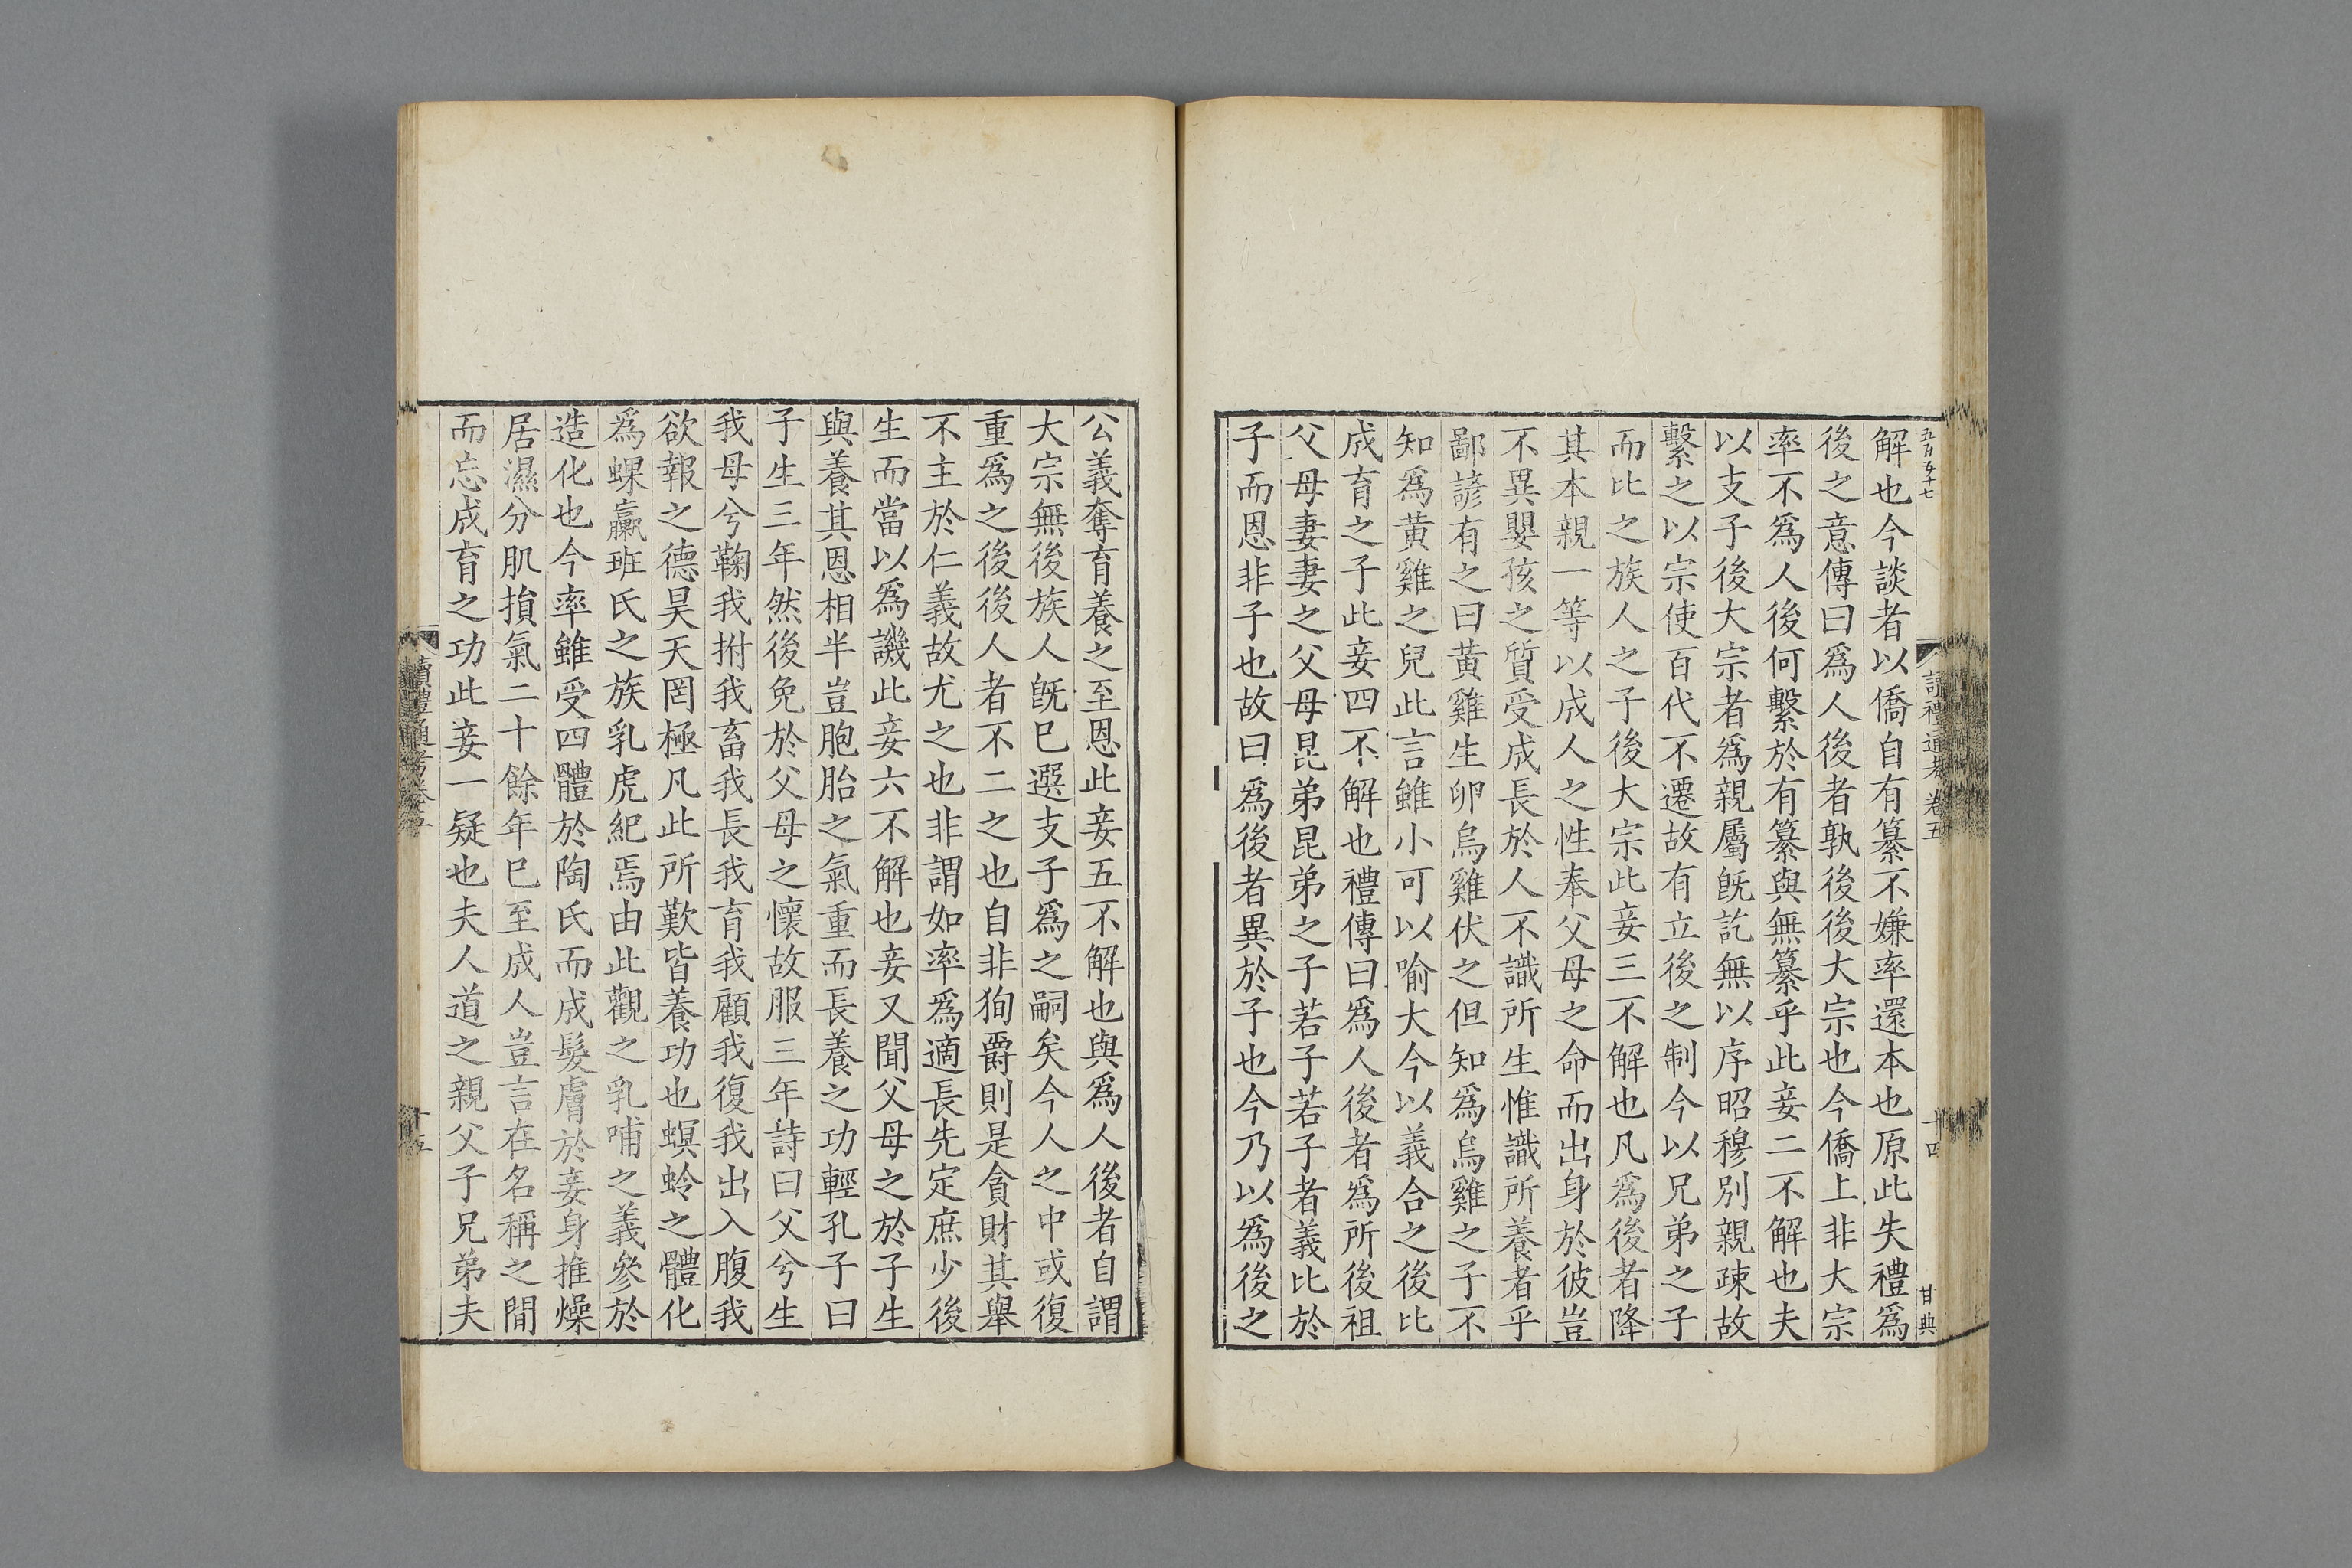 五百五十七
讀禮通考卷五
十四
甘典
解也今談者以僑自有纂不嫌率還本也原此失禮爲
後之意傳曰爲人後者孰後後大宗也今僑上非大宗
率不爲人後何繫於有纂與無纂乎此妾二不解也夫
以支子後大宗者爲親屬旣訖無以序昭穆別親疎故
繫之以宗使百代不遷故有立後之制今以兄弟之子
而比之族人之子後大宗此妾三不解也凡爲後者降
其本親一等以成人之性奉父母之命而出身於彼豈
不異嬰孩之質受成長於人不識所生惟識所養者乎
鄙諺有之曰黃雞生卵烏雞伏之但知爲烏雞之子不
知爲黃雞之兒此言雖小可以喻大今以義合之後比
成育之子此妾四不解也禮傳曰爲人後者爲所後祖
父母妻妻之父母昆弟昆弟之子若子若子者義比於
子而恩非子也故曰爲後者異於子也今乃以爲後之
公義奪育養之至恩此妾五不解也與爲人後者自謂
大宗無後族人旣巳選支子爲之嗣矣今人之中或復
重爲之後後人者不二之也自非狥爵則是貪財其舉
不主於仁義故尤之也非謂如率爲適長先定庶少後
生而當以爲譏此妾六不解也妾又聞父母之於子生
與養其恩相半豈胞胎之氣重而長養之功輕孔子曰
子生三年然後免於父母之懷故服三年詩曰父兮生
我母兮鞠我拊我畜我長我育我顧我復我出入腹我
欲報之德昊天罔極凡此所歎皆養功也螟蛉之體化
爲蜾蠃班氏之族乳虎紀焉由此觀之乳哺之義參於
造化也今率雖受四體於陶氏而成髮膚於妾身推燥
居濕分肌損氣二十餘年巳至成人豈言在名稱之間
而忘成育之功此妾一疑也夫人道之親父子兄弟夫
讀禮通考卷五
十五